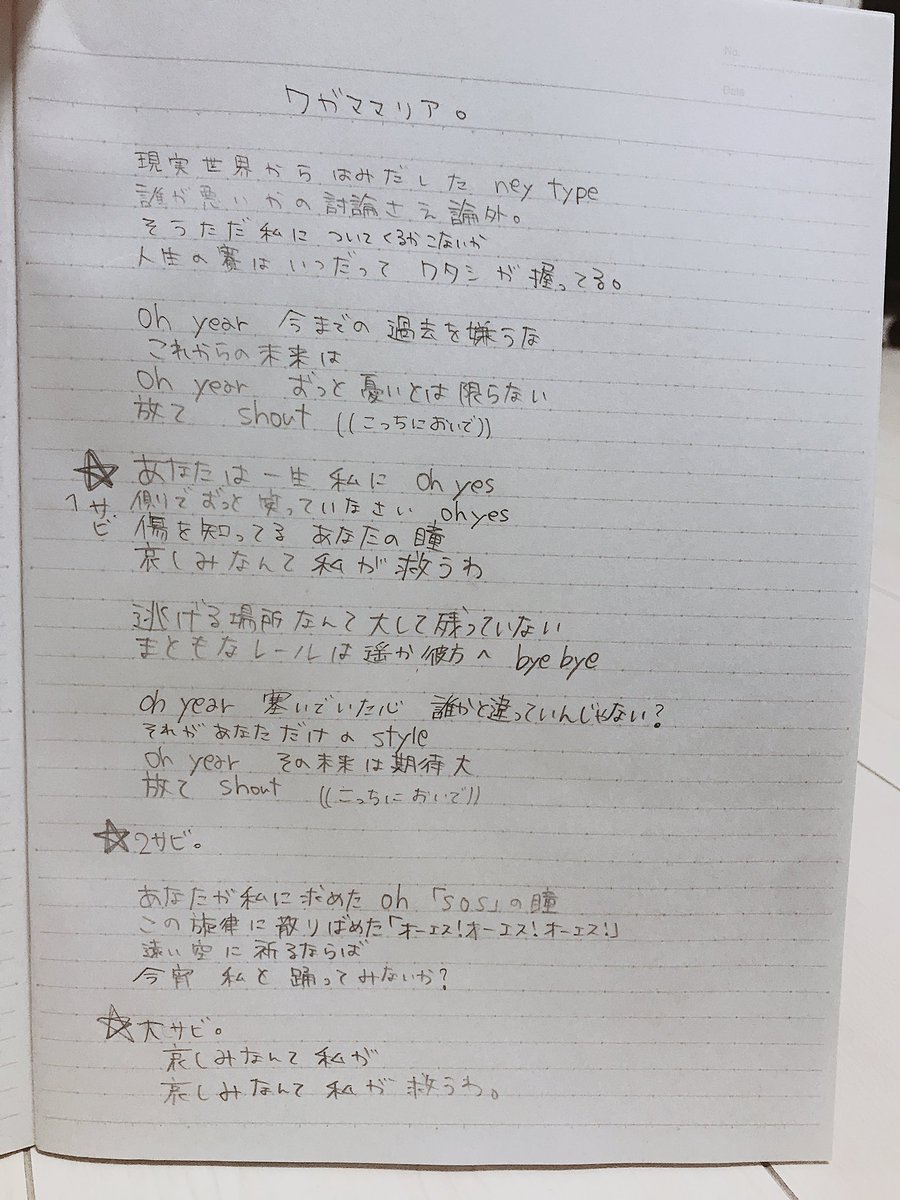 No.
Date
ワガママリア。
現実世界からはみだした ney type
誰が悪いかの討論さえ論外。
そうただ私に ついてくるかこないか
人生の賽は いつだって ワタシが 握ってる。
oh year 今までの 過去を嫌うな
これからの未来は
oh year ずっと憂いとは限らない
放て shout ((こっちにおいで))
☆ あなたは一生 私に oh yes
1サビ 側でずっと 笑っていなさい oh yes
傷を知ってる あなたの瞳
哀しみなんて 私が 救うわ
逃げる場所なんて大して残っていない
まともなレールは遥か彼方へ bye bye
oh year 塞いでいた心 誰かと違っていんじゃない?
それがあなただけの style
oh year その未来は期待大
放て shout ((こっちにおいで))
☆2サビ。
あなたが私に求めた oh 「SOS」の瞳
この旋律に散りばめた「オーエス!オーエス!オーエス!」
遠い空に祈るならば
今宵 私と 踊ってみないか?
☆大サビ。
哀しみなんて 私が
哀しみなんて 私が 救うわ。